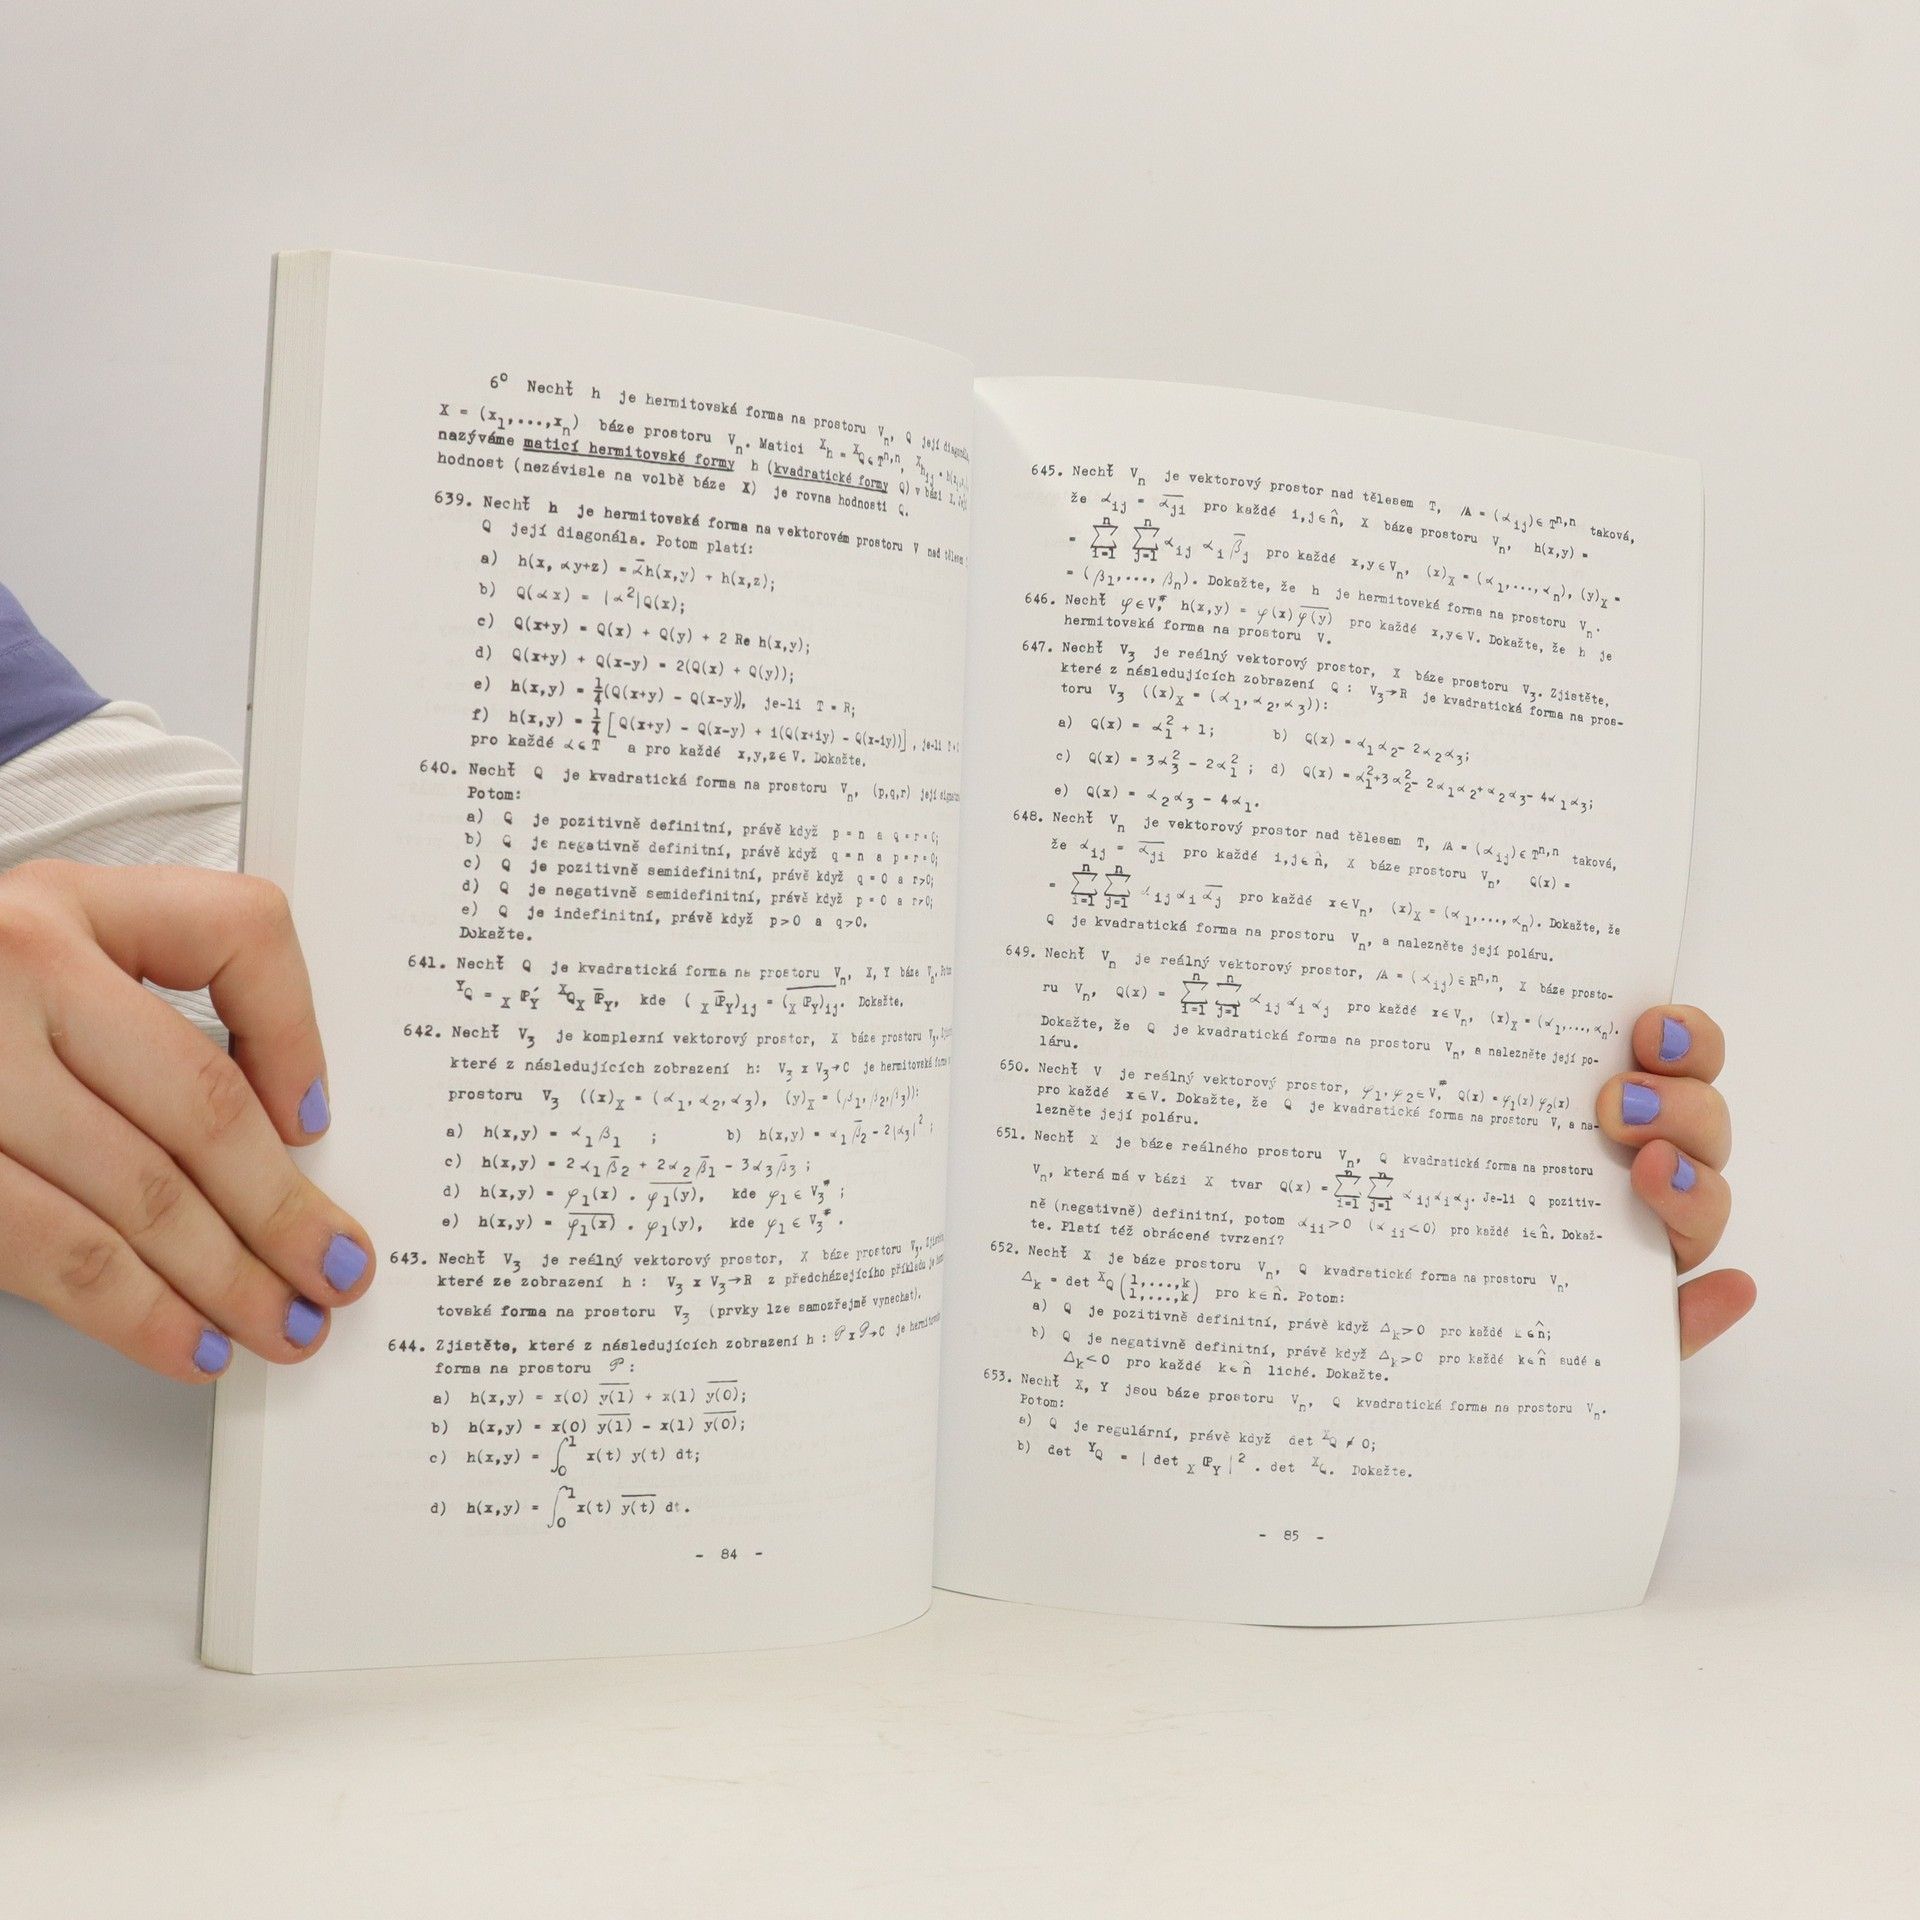 6° Nechť h je hermitovská forma na prostoru Vn, Q její
X = (x1,...,xn) báze prostoru Vn. Matici Xh = XQ ∈ Tn,n,
nazýváme maticí hermitovské formy h (kvadratické formy Q) v bázi X,
hodnost (nezávisle na volbě báze X) je rovna hodnosti Q.
639. Nechť h je hermitovská forma na vektorovém prostoru V nad
Q její diagonála. Potom platí:
a) h(x, αy+z) = ᾱh(x,y) + h(x,z);
b) Q(αx) = |α²|Q(x);
c) Q(x+y) = Q(x) + Q(y) + 2 Re h(x,y);
d) Q(x+y) + Q(x-y) = 2(Q(x) + Q(y));
e) h(x,y) = 1/4(Q(x+y) - Q(x-y)), je-li T = R;
f) h(x,y) = 1/4[Q(x+y) - Q(x-y) + i(Q(x+iy) - Q(x-iy))], je-li
pro každé α∈T a pro každé x,y,z∈V. Dokažte.
640. Nechť Q je kvadratická forma na prostoru Vn, (p,q,r) její
Potom:
a) Q je pozitivně definitní, právě když p=n a q=r=0;
b) Q je negativně definitní, právě když q=n a p=r=0;
c) Q je pozitivně semidefinitní, právě když q=0 a r>0;
d) Q je negativně semidefinitní, právě když p=0 a r>0;
e) Q je indefinitní, právě když p>0 a q>0.
Dokažte.
641. Nechť Q je kvadratická forma na prostoru Vn, X, Y báze Vn.
YQ = XPY′ XQ XP̄Y, kde (XP̄Y)ij = \overline{(XPY)ij}. Dokažte.
642. Nechť V3 je komplexní vektorový prostor, X báze prostoru V3.
které z následujících zobrazení h: V3 x V3→C je hermitovská
prostoru V3 ((x)X = (α1,α2,α3), (y)X = (β1,β2,β3)):
a) h(x,y) = α1β1 ; b) h(x,y) = α1β̄2 - 2|α3|² ;
c) h(x,y) = 2α1β̄2 + 2α2β̄1 - 3α3β̄3 ;
d) h(x,y) = φ1(x) . \overline{φ1(y)}, kde φ1 ∈ V3* ;
e) h(x,y) = \overline{φ1(x)} . φ1(y), kde φ1 ∈ V3* .
643. Nechť V3 je reálný vektorový prostor, X báze prostoru V3.
které ze zobrazení h : V3 x V3→R z předcházejícího příkladu je
tovská forma na prostoru V3 (prvky lze samozřejmě vynechat).
644. Zjistěte, které z následujících zobrazení h : 𝒫 x 𝒫→C je
forma na prostoru 𝒫 :
a) h(x,y) = x(0) \overline{y(1)} + x(1) \overline{y(0)};
b) h(x,y) = x(0) \overline{y(1)} - x(1) \overline{y(0)};
c) h(x,y) = ∫₀¹ x(t) y(t) dt;
d) h(x,y) = ∫₀¹ x(t) \overline{y(t)} dt.
- 84 -
645. Nechť Vn je vektorový prostor nad tělesem T, A = (αij)∈Tn,n taková,
že αij = \overline{αji} pro každé i,j∈n̂, X báze prostoru Vn, h(x,y) =
= ∑i=1n ∑j=1n αij αi β̄j pro každé x,y∈Vn, (x)X = (α1,...,αn), (y)X =
= (β1,...,βn). Dokažte, že h je hermitovská forma na prostoru Vn.
646. Nechť φ∈V*, h(x,y) = φ(x)\overline{φ(y)} pro každé x,y∈V. Dokažte, že h je
hermitovská forma na prostoru V.
647. Nechť V3 je reálný vektorový prostor, X báze prostoru V3. Zjistěte,
které z následujících zobrazení Q : V3→R je kvadratická forma na pros-
toru V3 ((x)X = (α1,α2,α3)):
a) Q(x) = α1² + 1; b) Q(x) = α1α2 - 2α2α3;
c) Q(x) = 3α3² - 2α1² ; d) Q(x) = α1²+3α2²- 2α1α2+α2α3- 4α1α3;
e) Q(x) = α2α3 - 4α1.
648. Nechť Vn je vektorový prostor nad tělesem T, A = (αij)∈Tn,n taková,
že αij = \overline{αji} pro každé i,j∈n̂, X báze prostoru Vn, Q(x) =
= ∑i=1n ∑j=1n αijαi\overline{αj} pro každé x∈Vn, (x)X = (α1,...,αn). Dokažte, že
Q je kvadratická forma na prostoru Vn, a nalezněte její poláru.
649. Nechť Vn je reálný vektorový prostor, A = (αij)∈Rn,n, X báze prosto-
ru Vn, Q(x) = ∑i=1n ∑j=1n αijαiαj pro každé x∈Vn, (x)X = (α1,...,αn).
Dokažte, že Q je kvadratická forma na prostoru Vn, a nalezněte její po-
láru.
650. Nechť V je reálný vektorový prostor, φ1,φ2∈V*, Q(x) = φ1(x)φ2(x)
pro každé x∈V. Dokažte, že Q je kvadratická forma na prostoru V, a na-
lezněte její poláru.
651. Nechť X je báze reálného prostoru Vn, Q kvadratická forma na prostoru
Vn, která má v bázi X tvar Q(x) = ∑i=1n ∑j=1n αijαiαj. Je-li Q pozitiv-
ně (negativně) definitní, potom αii>0 (αii<0) pro každé i∈n̂. Dokaž-
te. Platí též obrácené tvrzení?
652. Nechť X je báze prostoru Vn, Q kvadratická forma na prostoru Vn,
Δk = det XQ(1,...,k / 1,...,k) pro k∈n̂. Potom:
a) Q je pozitivně definitní, právě když Δk>0 pro každé k∈n̂;
b) Q je negativně definitní, právě když Δk>0 pro každé k∈n̂ sudé a
Δk<0 pro každé k∈n̂ liché. Dokažte.
653. Nechť X, Y jsou báze prostoru Vn, Q kvadratická forma na prostoru Vn.
Potom:
a) Q je regulární, právě když det XQ ≠ 0;
b) det YQ = |det XPY|² . det XQ. Dokažte.
- 85 -